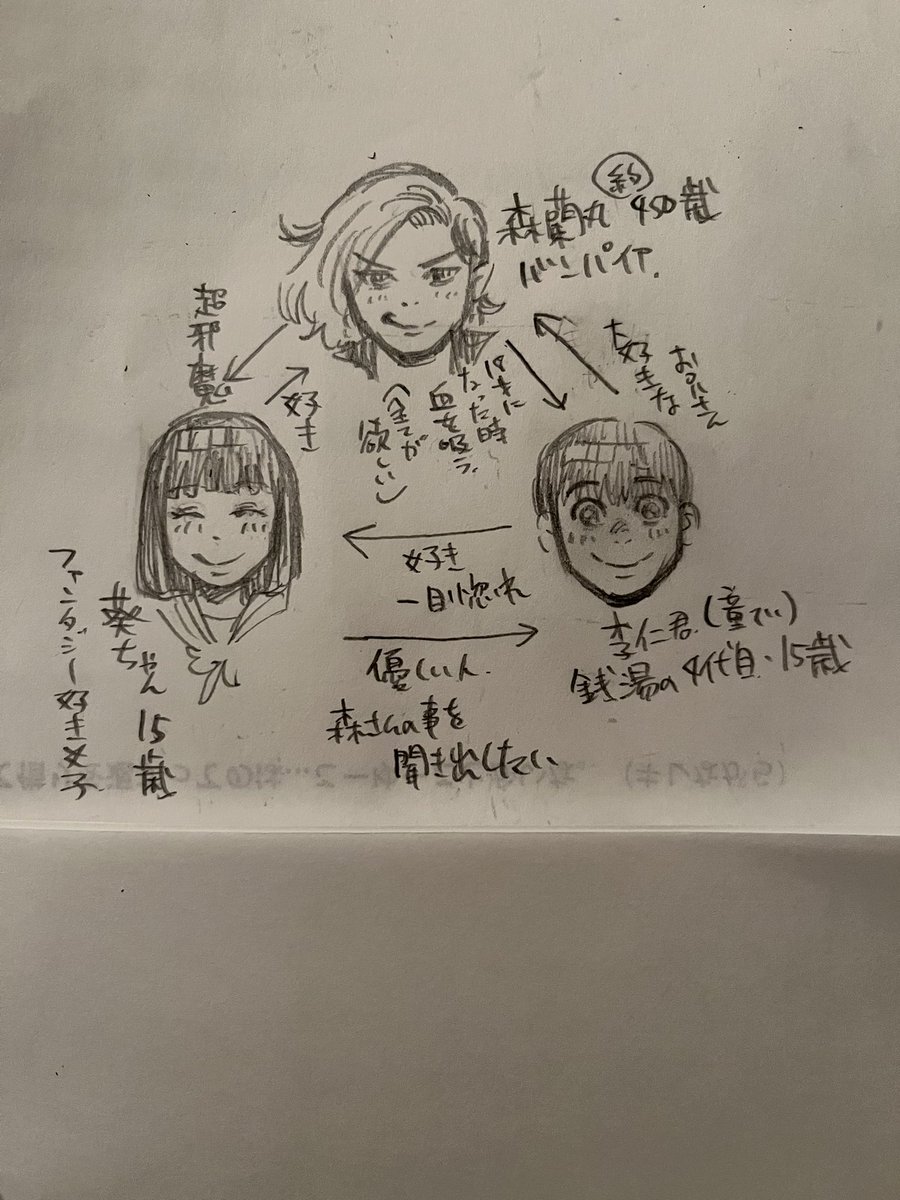 森蘭丸 約450歳
バンパイア.
超邪魔
好き
18才に
なった時
血を吸う.
(全てが
欲しい)
大好きな
お兄さん
好き
一目惚れ
優しい人.
森さんの事を
聞き出したい
李仁君.(童てい)
銭湯の4代目・15歳
葵ちゃん 15歳
ファンタジー好き女子